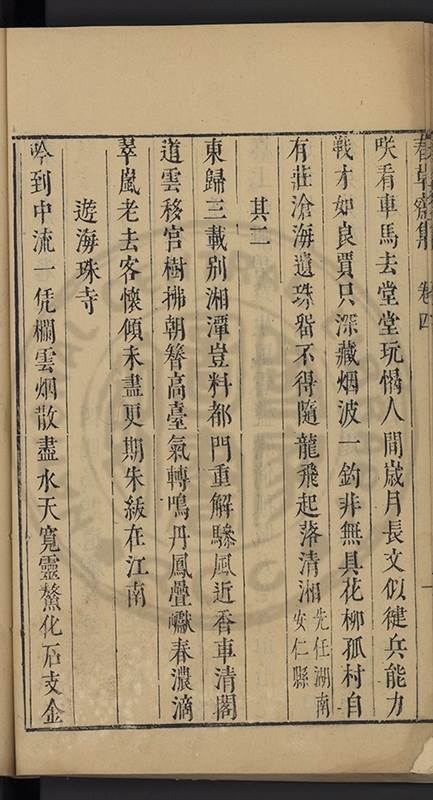 春草齋集 卷四
咲看車馬去堂堂玩愒人間歲月長文似健兵能力
戰才如良賈只深藏烟波一釣非無具花柳孤村自
有莊滄海遺珠畱不得隨龍飛起落清湘先任湖南安仁縣
其二
東歸三載別湘潭豈料都門重解驂風近香車清閣
道雲移官樹拂朝簪高臺氣轉鳴丹鳳疊巘春濃滴
翠嵐老去客懷傾未盡更期朱紱在江南
遊海珠寺
吟到中流一凭欄雲烟散盡水天寬靈鰲化石支金